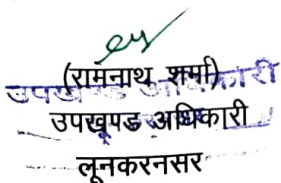 (रामनाथ शर्मा)
उपखण्ड अधिकारी
उपखण्ड अधिकारी
लूनकरनसर